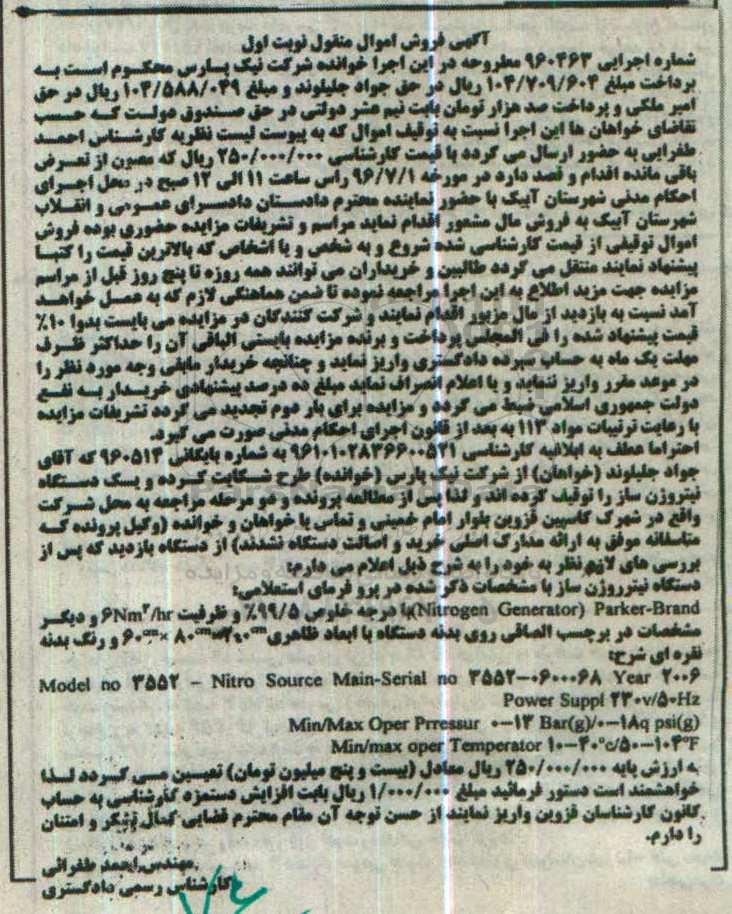 آگهی فروش اموال منقول نوبت اول
شماره اجرایی ۹۶۰۴۶۳ مطروحه در این اجرا خوانده شرکت نیک پارس محکوم است به
پرداخت مبلغ ۱۰۴/۷۰۹/۶۰۴ ریال در حق جواد جلیلوند و مبلغ ۱۰۴/۵۸۸/۰۴۹ ریال در حق
امیر ملکی و پرداخت صد هزار تومان بابت نیم عشر دولتی در حق صندوق دولت که حسب
تقاضای خواهان ها این اجرا نسبت به توقیف اموال که به پیوست لیست نظریه کارشناس احمد
طغرایی به حضور ارسال می گردد با قیمت کارشناسی ۲۵۰/۰۰۰/۰۰۰ ریال که مصون از تعرض
باقی مانده اقدام و قصد دارد در مورخه ۹۶/۷/۱ راس ساعت ۱۱ الی ۱۲ صبح در محل اجرای
احکام مدنی شهرستان آبیک با حضور نماینده محترم دادستان دادسرای عمومی و انقلاب
شهرستان آبیک به فروش مال مشعور اقدام نماید مراسم و تشریفات مزایده حضوری بوده فروش
اموال توقیفی از قیمت کارشناسی شده شروع و به شخص و یا اشخاص که بالاترین قیمت را کتبا
پیشنهاد نمایند منتقل می گردد طالبین و خریداران می توانند همه روزه تا پنج روز قبل از مراسم
مزایده جهت مزید اطلاع به این اجرا مراجعه نموده تا ضمن هماهنگی لازم که به عمل خواهد
آمد نسبت به بازدید از مال مزبور اقدام نمایند و شرکت کنندگان در مزایده می بایست بدوا ۱۰٪
قیمت پیشنهاد شده را فی المجلس پرداخت و برنده مزایده بایستی الباقی آن را حداکثر ظرف
مهلت یک ماه به حساب سپرده دادگستری واریز نماید و چنانچه خریدار مابقی وجه مورد نظر را
در موعد مقرر واریز ننماید و یا اعلام انصراف نماید مبلغ ده درصد پیشنهادی خریدار به نفع
دولت جمهوری اسلامی ضبط می گردد و مزایده برای بار دوم تجدید می گردد تشریفات مزایده
با رعایت ترتیبات مواد ۱۱۳ به بعد از قانون اجرای احکام مدنی صورت می گیرد.
احتراما عطف به ابلاغیه کارشناسی ۹۶۱۰۱۰۲۸۳۶۶۰۰۵۲۱ به شماره بایگانی ۹۶۰۵۱۳ که آقای
جواد جلیلوند (خواهان) از شرکت نیک پارس (خوانده) طرح شکایت کرده و یک دستگاه
نیتروزن ساز را توقیف کرده اند و لذا پس از مطالعه پرونده و دو مرحله مراجعه به محل شرکت
واقع در شهرک کاسپین قزوین بلوار امام خمینی و تماس با خواهان و خوانده (وکیل پرونده که
متاسفانه موفق به ارائه مدارک اصلی خرید و اصالت دستگاه نشدند) از دستگاه بازدید که پس از
بررسی های لازم نظر به خود را به شرح ذیل اعلام می دارم:
دستگاه نیتروزن ساز با مشخصات ذکر شده در پرو فرمای استعلامی:
Nitrogen Generator) Parker-Brand)با درجه خلوص ۹۹/۵٪ و ظرفیت ۶Nm³/hr و دیگر
مشخصات در برچسب الصاقی روی بدنه دستگاه با ابعاد ظاهری ۶۰cm × ۸۰cm و رنگ بدنه
نقره ای شرح:
Model no ۳۵۵۲ – Nitro Source Main-Serial no ۳۵۵۲-۰۶۰۰۰۶۸ Year ۲۰۰۶
Power Suppl ۲۳۰v/۵۰Hz
Min/Max Oper Prressur ۰-۱۳ Bar(g)/۰-۱۸q psi(g)
Min/max oper Temperator ۱۰-۴۰°c/۵۰-۱۰۴°F
به ارزش پایه ۲۵۰/۰۰۰/۰۰۰ ریال معادل (بیست و پنج میلیون تومان) تعیین می گردد لذا
خواهشمند است دستور فرمائید مبلغ ۱/۰۰۰/۰۰۰ ریال بابت افزایش دستمزد کارشناسی به حساب
کانون کارشناسان قزوین واریز نمایند از حسن توجه آن مقام محترم قضایی کمال تشکر و امتنان
را دارم.
مهندس احمد طغرائی
کارشناس رسمی دادگستری